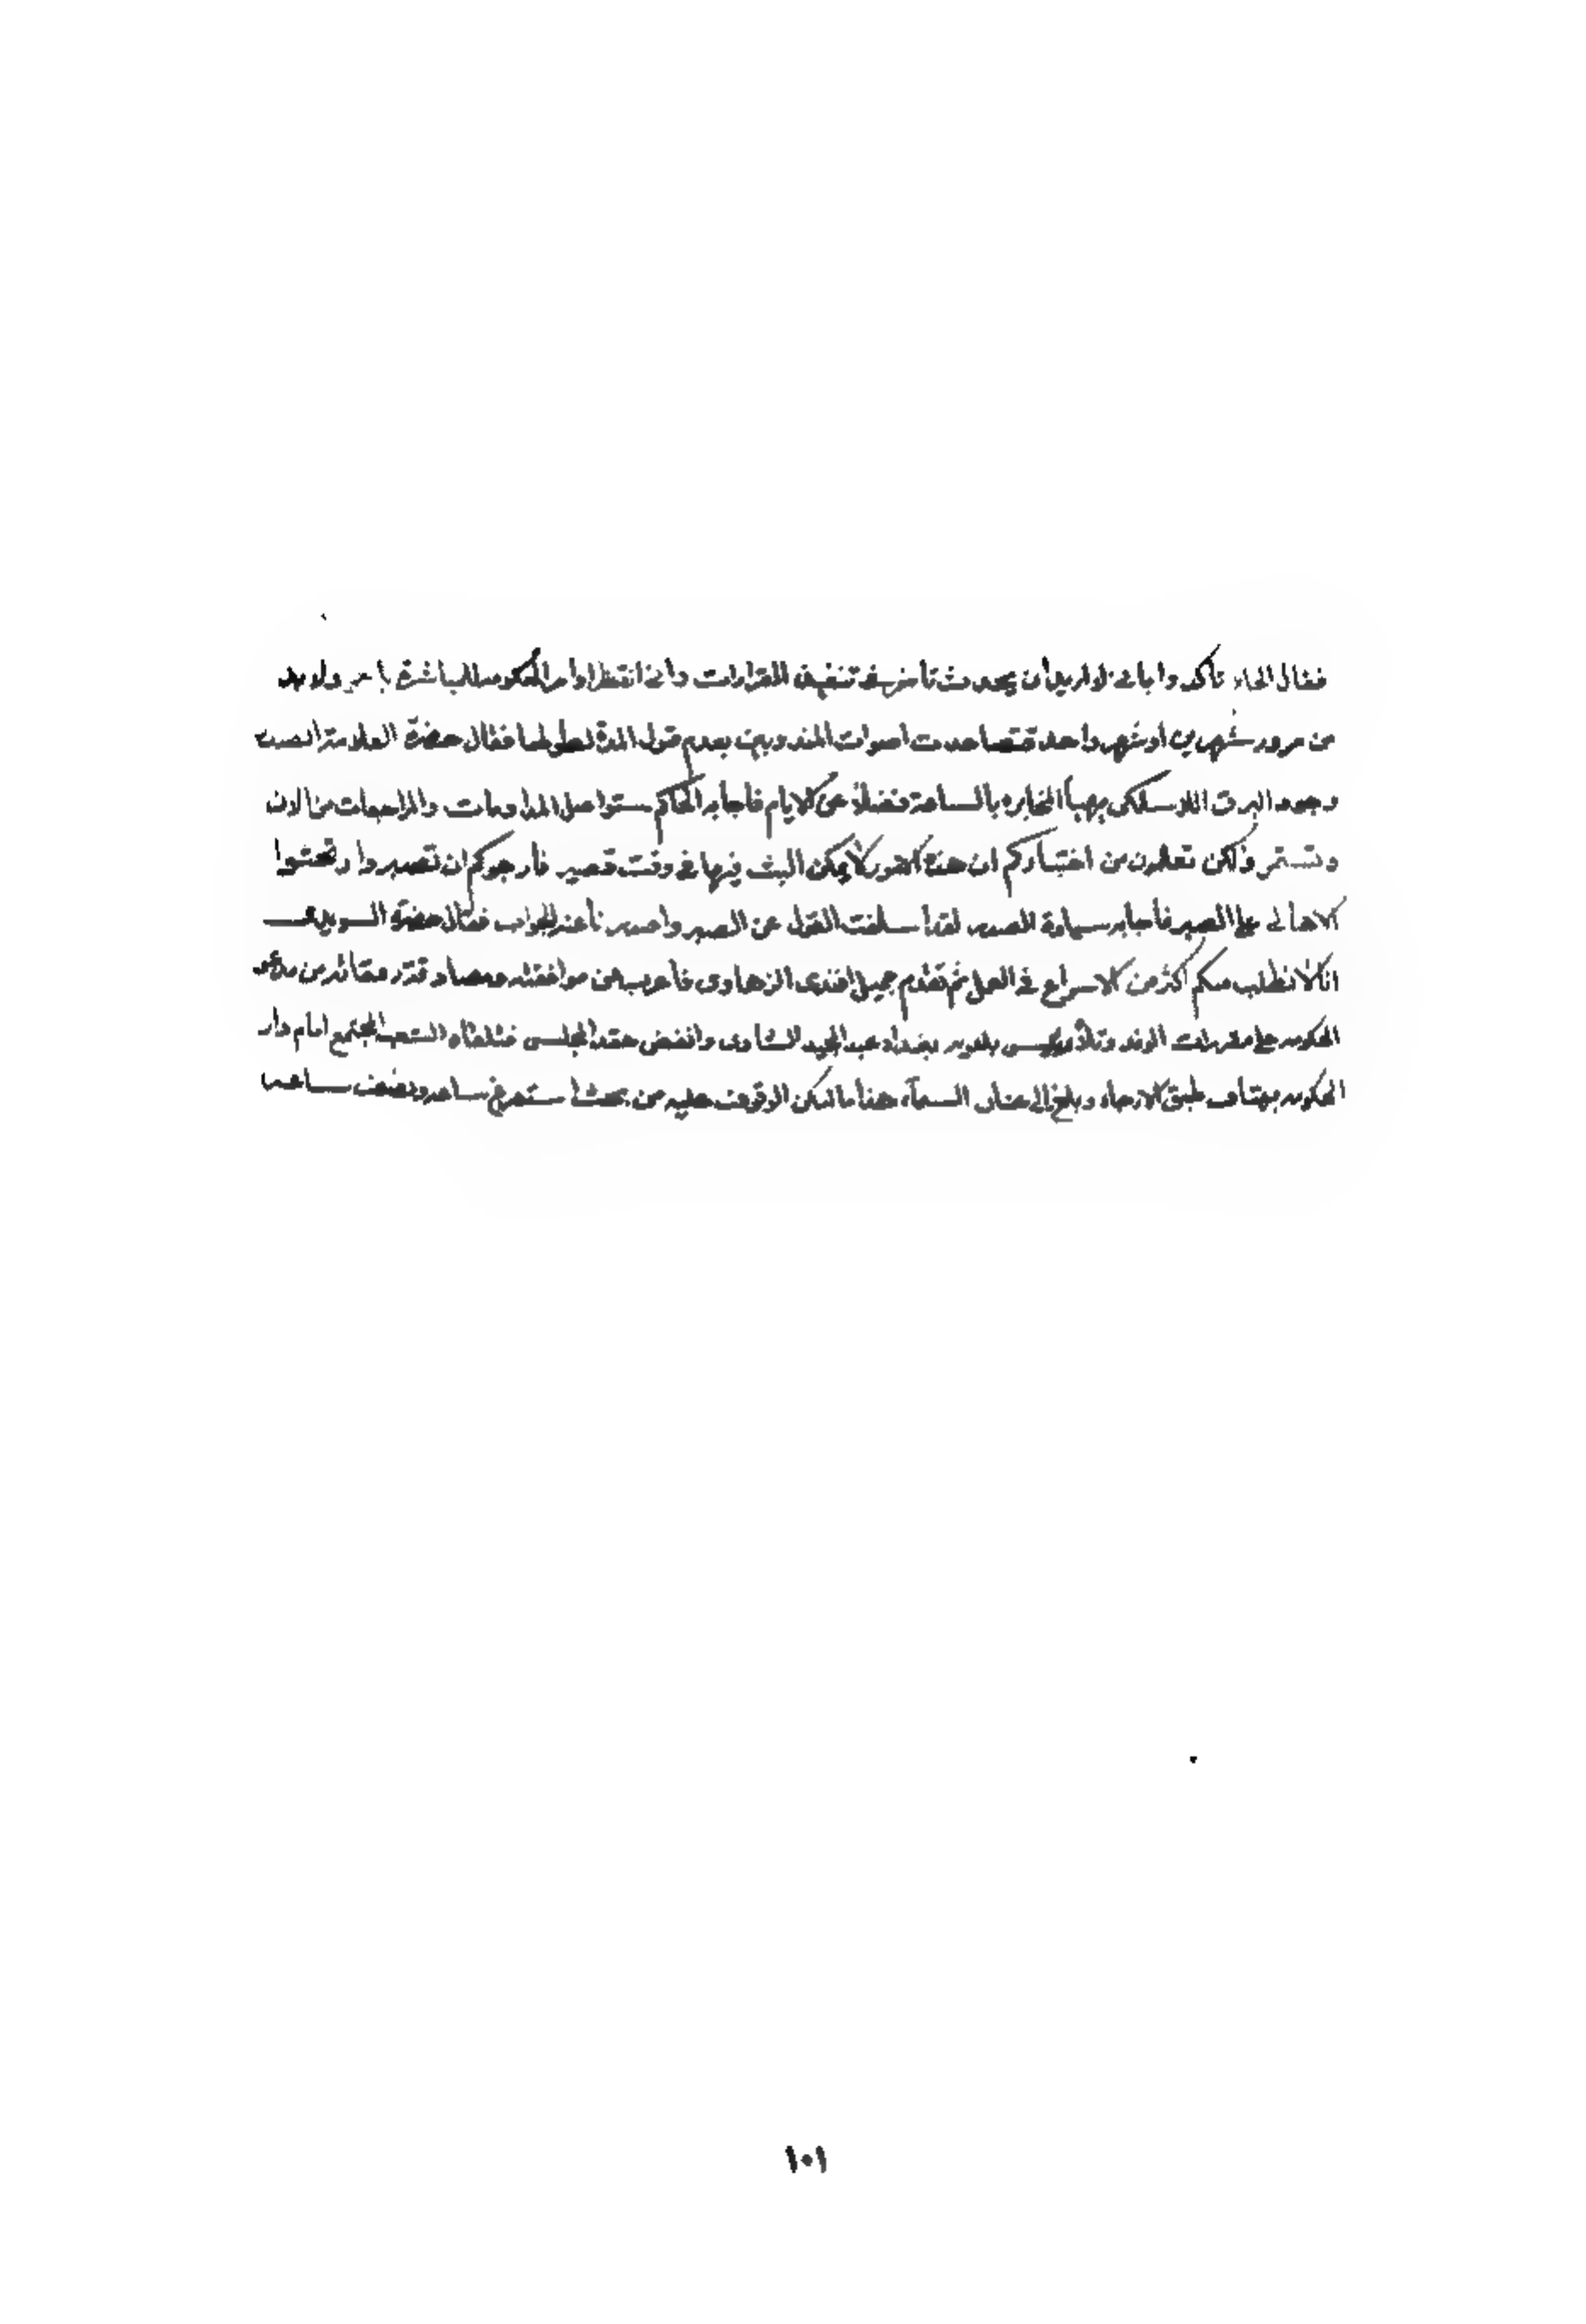 فقال الحاكم تأكدوا باني لا اريد أن يحدث تأخير في تنفيذ القرارات وأني انتظر اوامر الحكومة للمباشرة بأمر ولا بد
من مرور شهرين او شهر واحد فتصاعدت اصوات المندوبين بعدم قبول المدة لطولها فقال حضرة العلامة الصدر
وجود البرق اللاسلكي يهيأ المخابره بالساعة فضلاً عن الايام فأجابه الحاكم ستواصل المداومات والمراجعات من الان
وتستمر ولكن تعلمون من اختباركم ان هذه الامور لا يمكن البث فيها في وقت قصير فأرجوكم ان تصبروا وتحثوا
الاهالي على الصبر فأجابه سيادة الصدر لقد أسلفت القول عن الصبر فقال حضرة السويدي
اننا لا نطلب منكم اكثر من الاسراع في العمل ثم تقدم جميل افندي الزهاوي فأعرب عن موافقته ومصادقة رفقائه من
الحكومة على مقررات الوفد وتلاه رئيس بلدية بغداد عبد المجيد الشاوي وانفض عقد المجلس فتلقاه الشعب المجتمع امام دار
الحكومة بهتاف طبق الارجاء وبلغ الى عنان السماء هذا ما امكن الوقوف عليه من بحث استغرق ساعة ونصف ساعة
١٠١